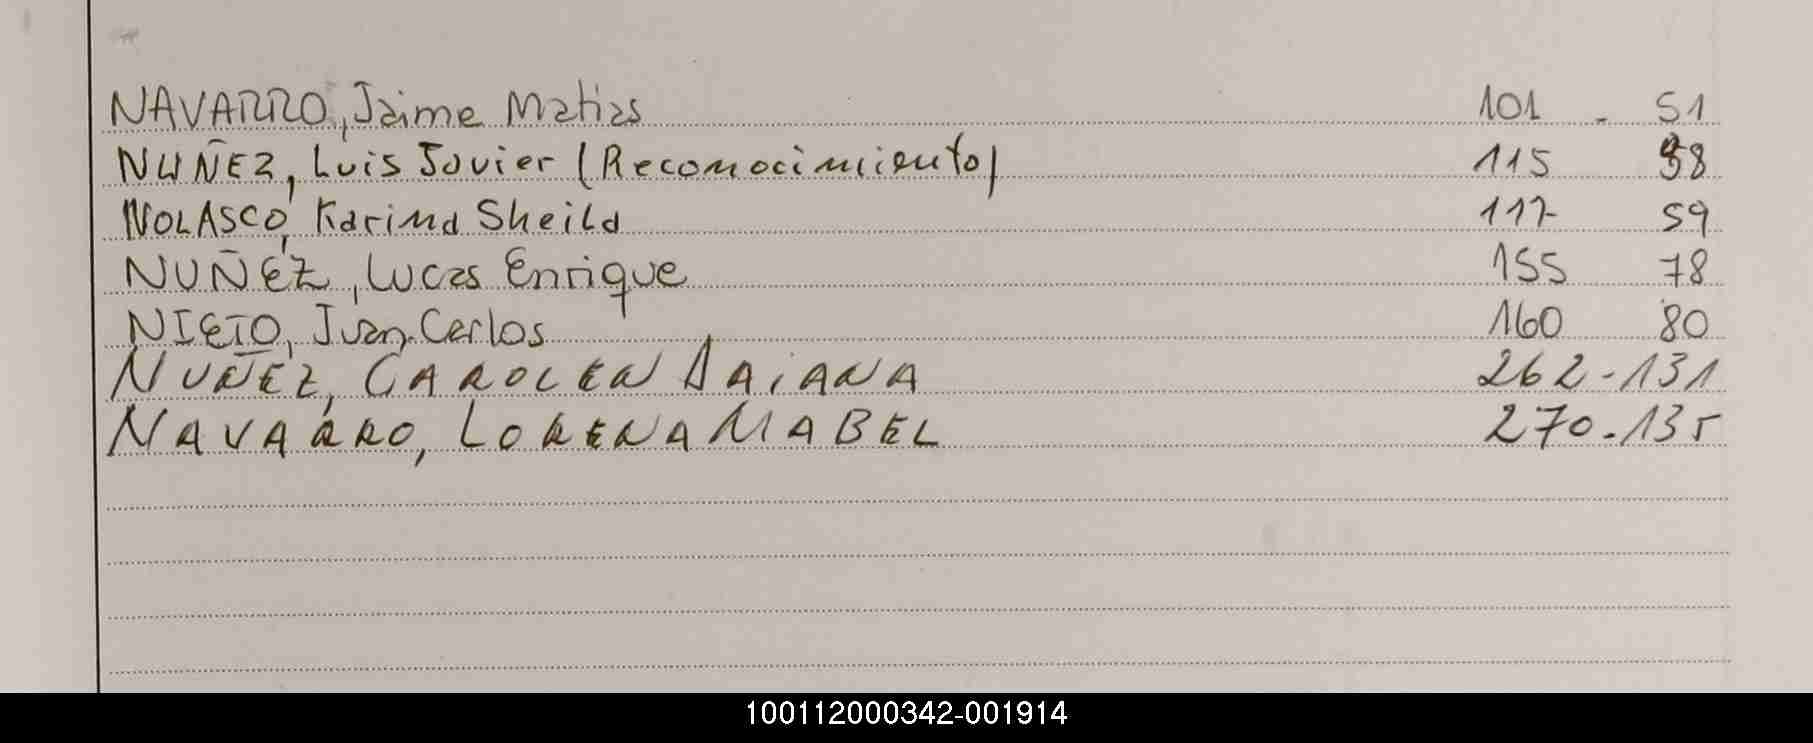 NAVARRO, Jaime Matias 101 - 51
NUÑEZ, Luis Javier (Reconocimiento) 115 58
NOLASCO, Karina Sheila 117 59
NUÑEZ, Lucas Enrique 155 78
NIETO, Juan Carlos 160 80
NUÑEZ, CAROLEN DAIANA 262-131
NAVARRO, LORENA MABEL 270-135
100112000342-001914